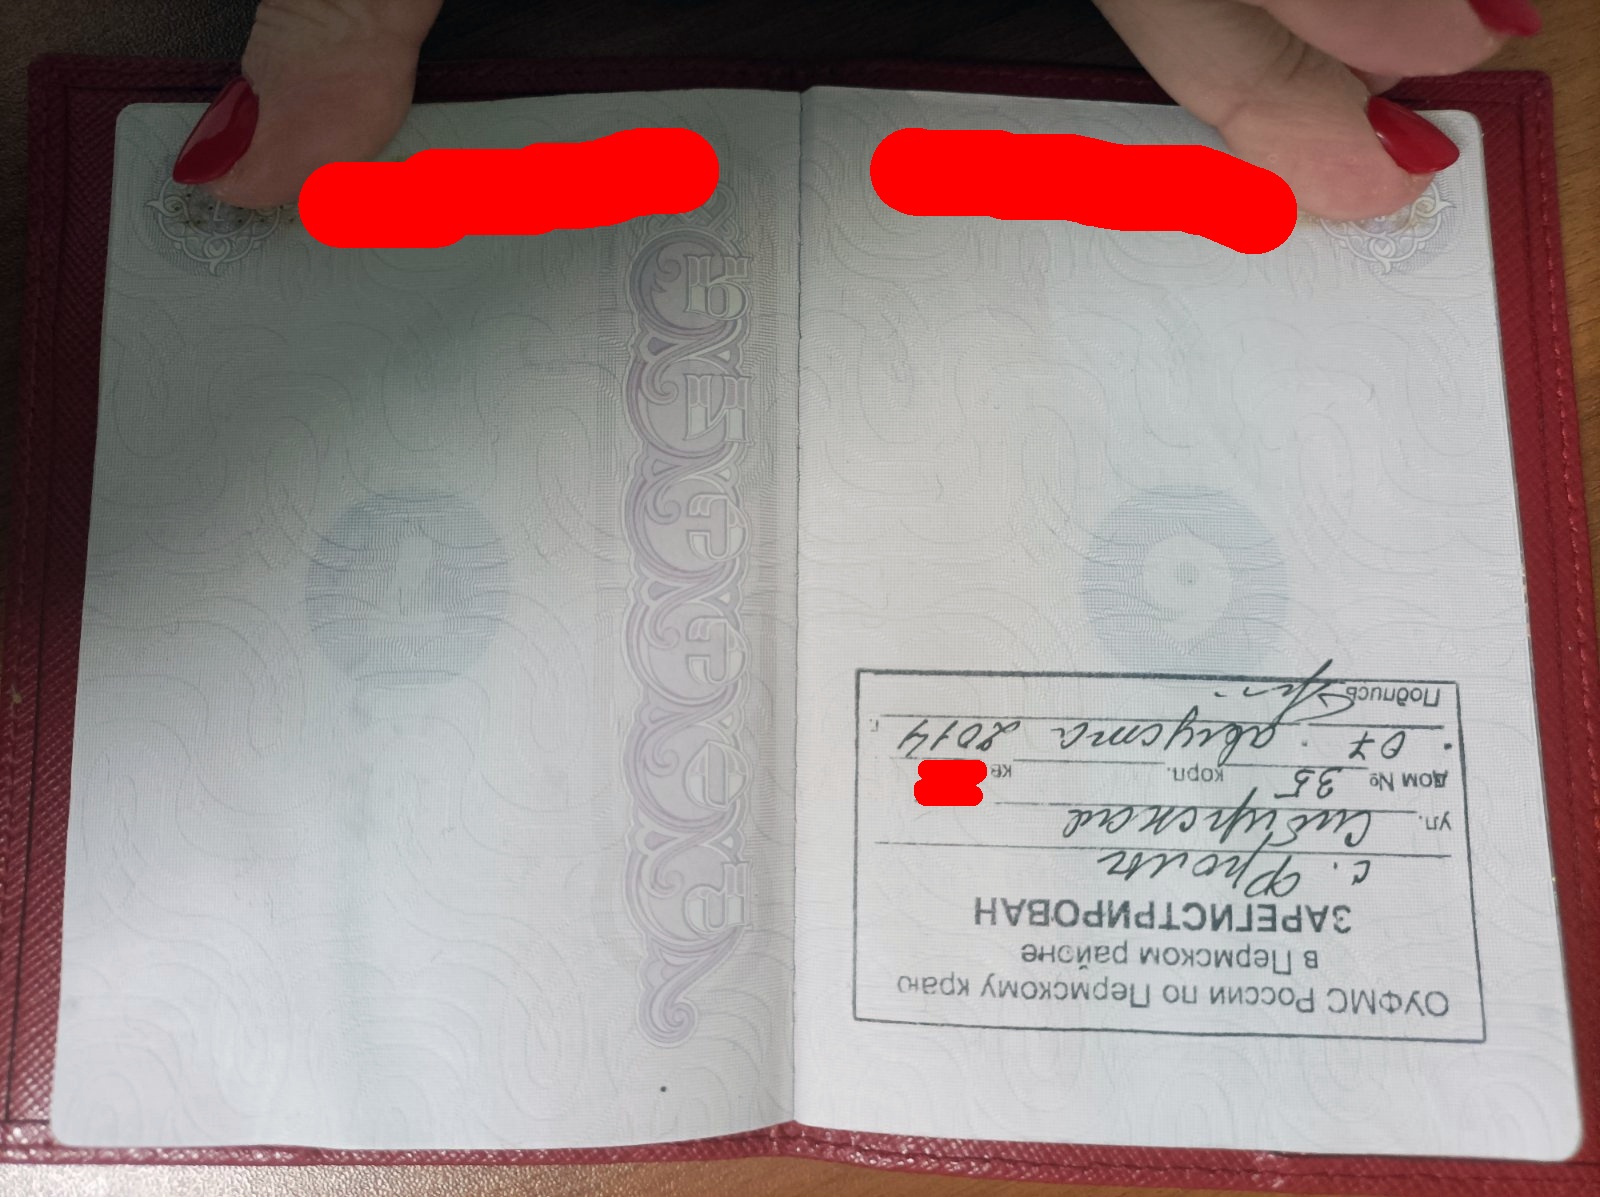 ОУФМС России по Пермскому краю
в Пермском районе
ЗАРЕГИСТРИРОВАН
с. Фролы
ул. Сибирская
дом № 35 корп. кв
07 августа 2014 г.
Подпись